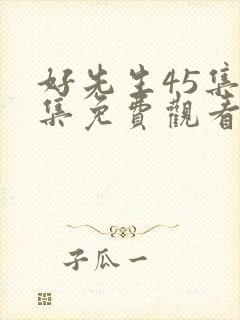 好先生45集
集免費觀看
子瓜一